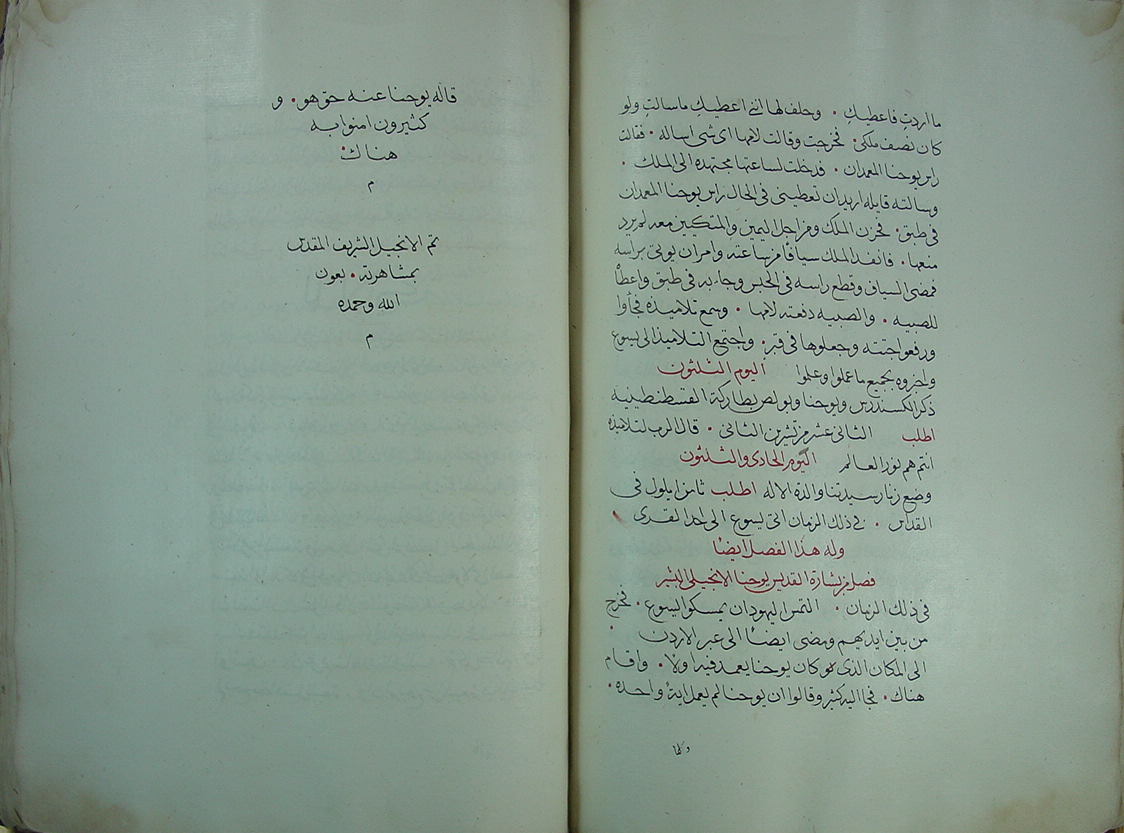 ما اردتِ فاعطيكِ • وحلف لها انني اعطيكِ ما سالتِ ولو
كان نصف ملكي • فخرجت وقالت لامها اى شى اساله • فقالت
راس يوحنا المعمدان • فدخلت لساعتها مجتهده الى الملك •
وسالته قايله اريد ان تعطينى فى الحال راس يوحنا المعمدان
فى طبق • فحزن الملك ومن اجل اليمين والمتكيين معه لم يرد
منعها • فانفد الملك سيافًا من ساعته وامر ان يوتى براسه
فمضى السياف وقطع راسه فى الحبس وجا به فى طبق واعطاه
للصبيه • والصبيه دفعته لامها • وسمع تلاميذه فجأوا
ورفعوا جتته وجعلوها فى قبر • واجتمع التلاميذ الى يسوع
واخبروه بجميع ما عملوا وعلموا اليوم الثلثون
ذكر الكسندرس ويوحنا وبولص بطاركة القسطنطينيه
اطلب الثانى عشر من تشرين الثانى • قال الرب لتلاميذه
انتم هم نور العالم اليوم الحادى والثلثون
وضع زنار سيدتنا والدة الاله اطلب ثامن ايلول فى
القداس • فى ذلك الزمان اتى يسوع الى احدا القرى
وله هذا الفصل ايضًا
فصل من بشارة القديس يوحنا الانجيلى البشير
فى ذلك الزمان • التمس اليهود ان يمسكوا ليسوع • فخرج
من بين ايديهم ومضى ايضًا الى عبر الاردن
الى المكان الذى كان يوحنا يعمد فيه اولا • واقام
هناك • فجا اليه كثير وقالوا ان يوحنا لم يعمل اية واحده •
وكلما
قاله يوحنا عنه حق هو • و
كثيرون امنوا به
هناك •
م
تم الانجيل الشريف المقدس
بمشاهرته • بعون
الله وحمده
م